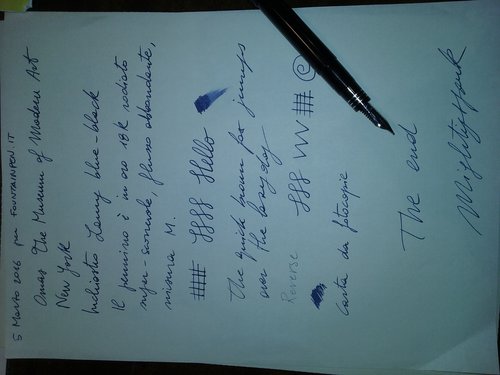 5 Marzo 2016 per FOUNTAINPEN.IT
Omas The Museum of Modern Art
New York
Inchiostro Lamy blue-black
Il pennino è in oro 18K rodiato
super-scorrevole, flusso abbondante,
misura M.
Hello
The quick brown fox jumps
over the lazy dog
Reverse
Carta da fotocopie
The end
Mightyspank